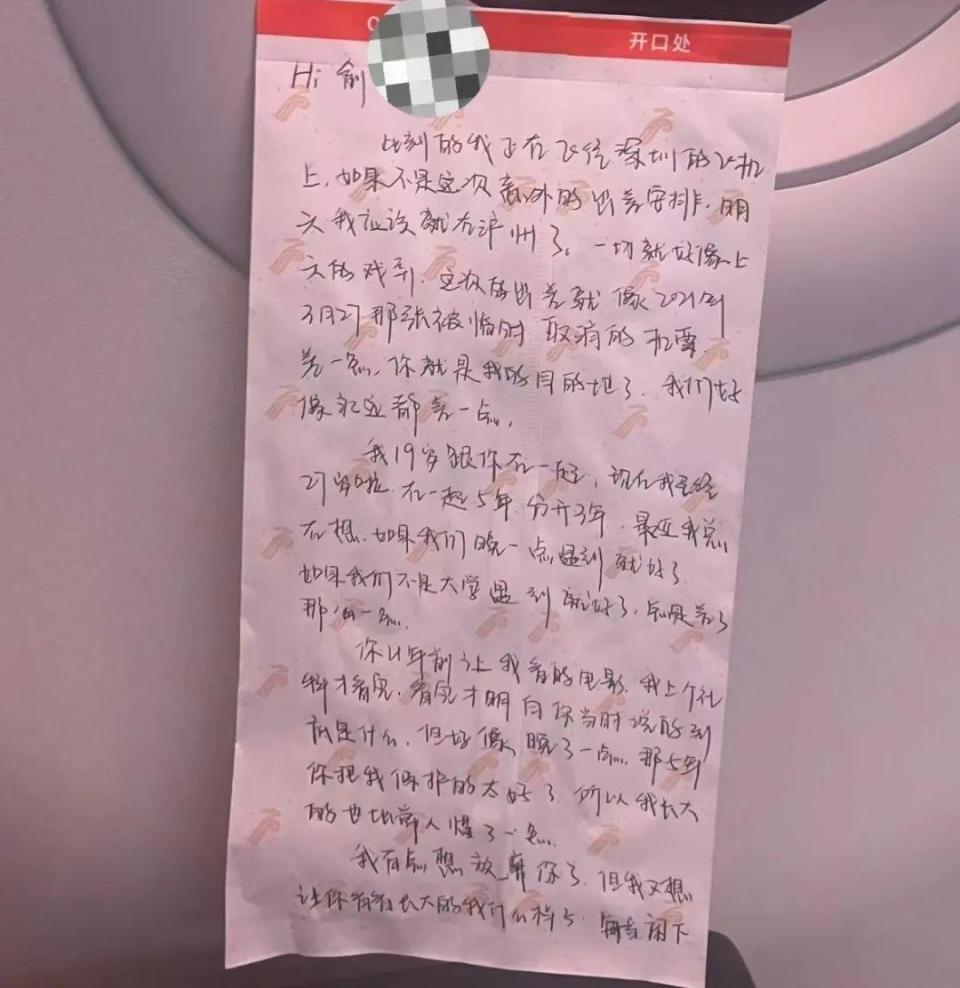 开口处
Hi 俞
此刻的我正在飞往深圳的飞机
上,如果不是这次意外的出差安排,明
天我应该就在泸州了。一切就好像上
天的戏弄,这次的出差就像2021年
3月27那张被临时取消的机票
差一点,你就是我的目的地了,我们好
像永远都差一点,
我19岁跟你在一起,现在我已经
27岁啦,在一起5年,分开3年,最近我总
在想,如果我们晚一点遇到就好了
如果我们不是大学遇到就好了,总是差了
那么一点,
你4年前让我看的电影,我上个礼
拜才看完,看完才明白你当时说的到
底是什么,但好像,晚了一点,那5年
你把我保护的太好了,所以我长大
的也比常人慢了一点,
我有点想放弃你了,但我又想
让你看看长大的我什么样了,每当闲下